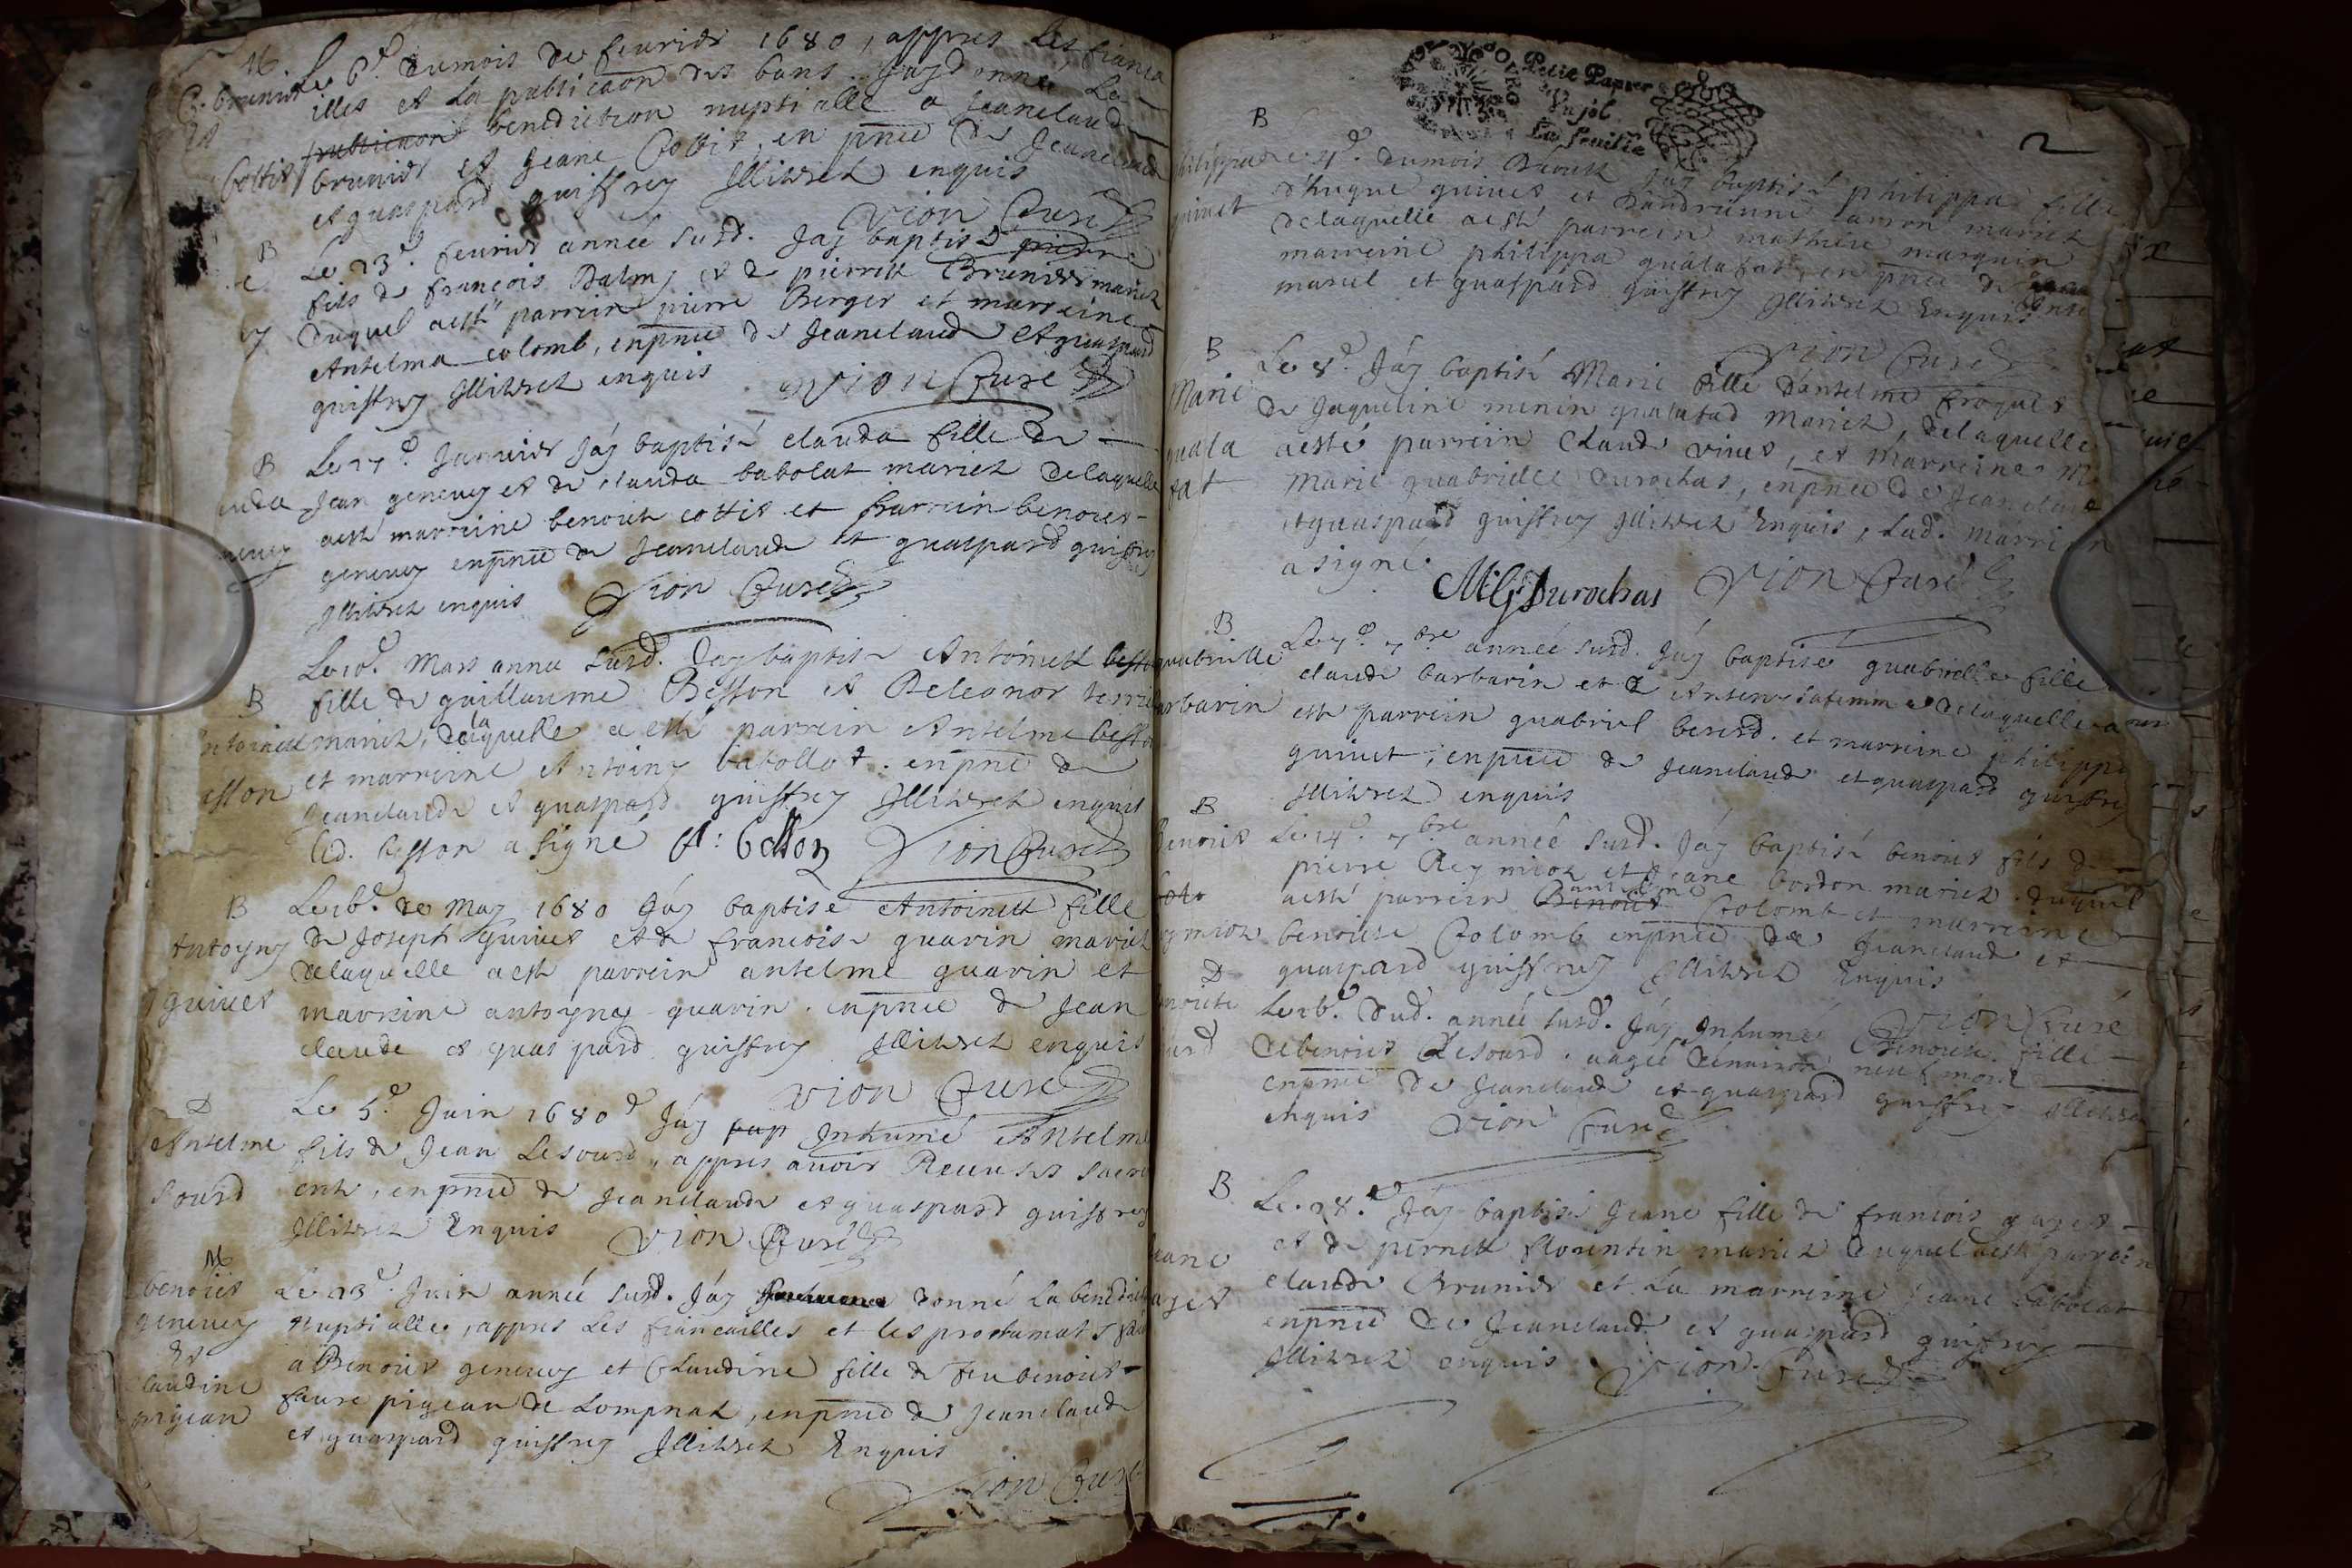 M.
Le 6e. dumois de feurier 1680, appres les fianca
illes et la publicaon des bans. Jay donné La
publicaon benediction nuptialle a Jeanclaude
brunier et Jeane Cottit, en pnce de Jeanclaude
et guaspard guiffrey Illitrez enquis
Vion Curé
B
Le 23e. feurier année susd. Jay baptisé pierre
fils de françois Dalmy et de pierrette Brunier mariez
duquel aesté parrein pierre Berger et marreine
Antelma colomb, enpnce de Jeanclaude et guaspard
guiffrey Illitrez enquis Vion Curé
B
Le 27e. Januier Jay baptisé clauda fille de
Jean geneuey et de clauda babolat mariez delaquelle
aesté marreine benoite cottit et parrein benoit
geneuey enpnce de Jeanclaude et guaspard guiffrey
Illitrez enquis Vion Curé
B
Le 10e. Mars année susd. Jay baptisé Antoinette
fille de guillaume Besson et Deleonor
mariez, delaquelle a esté parrein Antelme besson
et marreine Antoiny babollat. enpnce de
Jeanclaude et guaspard guiffrey Illitrez enquis
led. besson a signé Vion Curé
B
Antoyny
guiuet
Le 16e. de May 1680 Jay baptisé Antoinette fille
de Joseph guiuet et de françoise guarin mariez
delaquelle aesté parrein antelme guarin et
marreine antoyny guarin. enpnce de Jean
claude et guaspard guiffrey Illitrez enquis
Vion Curé
D
Antelme
sourd
Le 5e. Juin 1680 Jay Inhumé Antelme
fils de Jean Lesourd, appres auoir Receu ses sacrem
ents, enpnce de Jeanclaude et guaspard guiffrey
Illitrez Enquis Vion Curé
M
benoist
geneuey
et
laudine
pigeau
Le 23e. Juin année susd. Jay donné La benedict
nuptialle, appres Les fiancailles et les proclamats
a Benoist geneuey et Claudine fille de feu benoist
faure pigeau de Lompnaz, enpnce de Jeanclaude
et guaspard guiffrey Illitrez Enquis
Vion Curé
Petit Papier
Un sol
La feuille
2
B
dumois Daoust Jay baptisé philippa fille
d'hugue guiuet, et Dandrienne mariez
delaquelle aesté parrein mathieu marguin
marreine philippa gualatat, en pnce de
et guaspard guiffrey Illitrez Enquis
Vion Curé
B
Marie
guala
tat
Le 8e. Jay baptisé Marie fille dantelme
de Jaqueline menin gualatad Mariez, delaquelle
aesté parrein Claude viuet, et Marreine
Marie guabrielle Durochas, enpnce de Jeanclaude
et guaspard guiffrey Illitrez Enquis, Lad. Marreine
a signé.
MG Durochas Vion Curé
B
guabrielle
arbarin
Le 7e. 7bre année susd. Jay baptisé guabrielle fille
claude barbarin et d Anteny safemme delaquelle a
esté parrein guabriel berard. et marreine philippa
guiuet, enpnce de Jeanclaude et guaspard guiffrey
Illitrez enquis
B
Benoist
Le 14e. 7bre année susd. Jay baptisé benoist fils de
pierre Reymioz et Jeane bordon mariez. duquel
aesté parrein Benoist antelme Colomb et marreine
benoiste Colomb enpnce de Jeanclaude et
guaspard guiffrey Illitrez Enquis
Vion Curé
D
Le 16e. dud. année susd. Jay Inhumé Benoiste fille
debenoist Lesourd. aagée denuiron neuf mois
enpnce de Jeanclaude et guaspard guiffrey Illitrez
enquis Vion Curé
B
Le 28e. Jay baptisé Jeane fille de françois gazet
et de pernette florentin mariez duquel aesté parrein
claude Brunier et La marreine Jeane babolat
enpnce de Jeanclaude et guaspard guiffrey
Illitrez enquis. Vion Curé